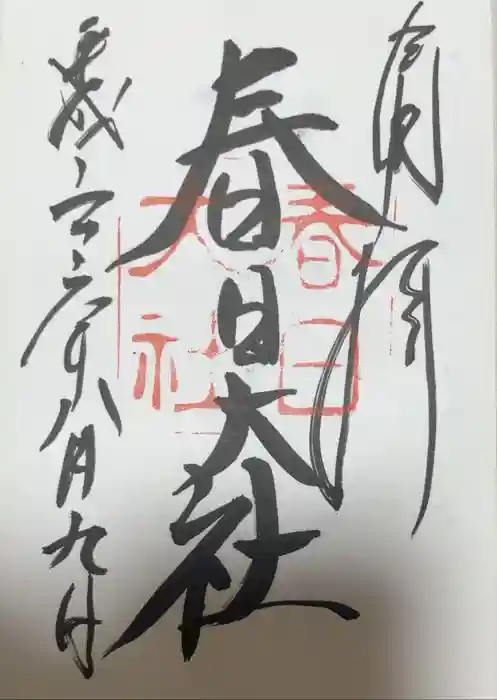 奉拝
春日大社
春日
大社
平成二十六年八月九日